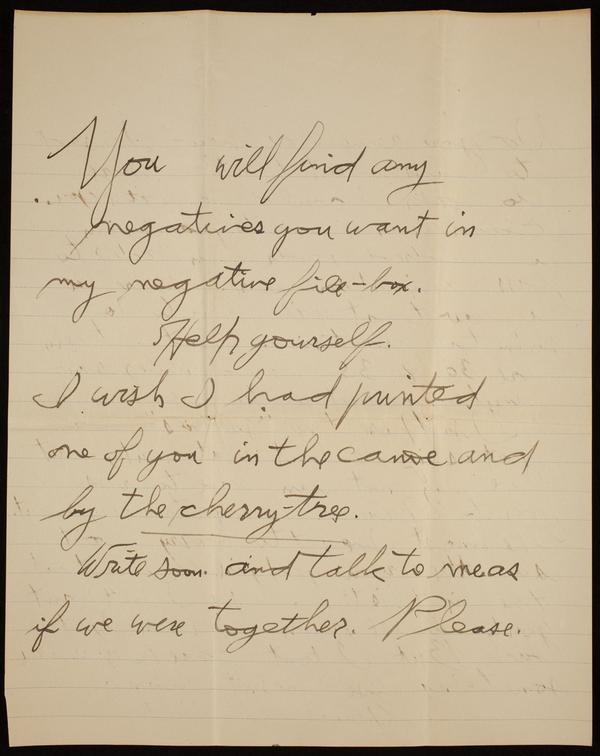 You will find any
negatives you want in
my negative file-box.
Help yourself.
I wish I had printed
one of you in the canoe and
by the cherry-tree.
Write soon. and talk to me as
if we were together. Please.